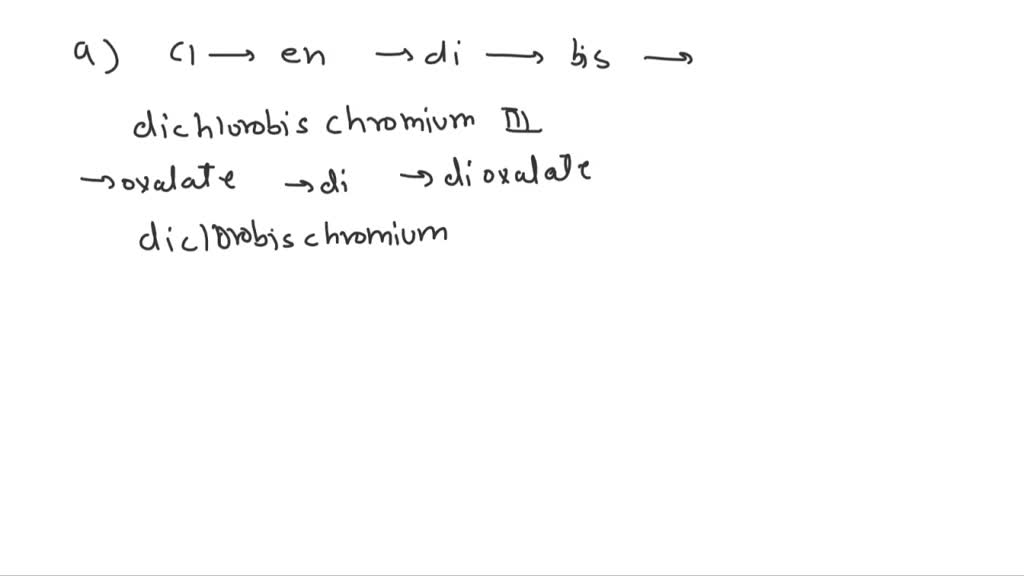 a) Cl → en → di → bis →
dichlorobis chromium III
→ oxalate → di → dioxalate
diclorobis chromium